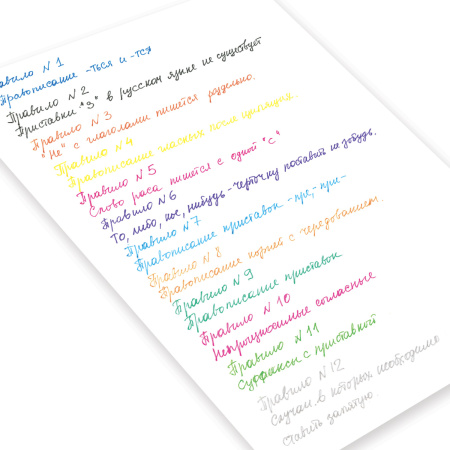 Правило N 1
Правописание -ться и -тся
Правило N 2
Приставки "З" в русском языке не существует
Правило N 3
"Не" с глаголами пишется раздельно.
Правило N 4
Правописание гласных после шипящих.
Правило N 5
Слово раса пишется с одной "с"
Правило N 6
То, либо, кое, нибудь - черточку поставить не забудь.
Правило N 7
Правописание приставок -пре, -при-
Правило N 8
Правописание корней с чередованием.
Правило N 9
Правописание приставок
Правило N 10
Непроизносимые согласные
Правило N 11
Суффиксы с приставкой
Правило N 12
Случаи в которых необходимо
ставить запятую.